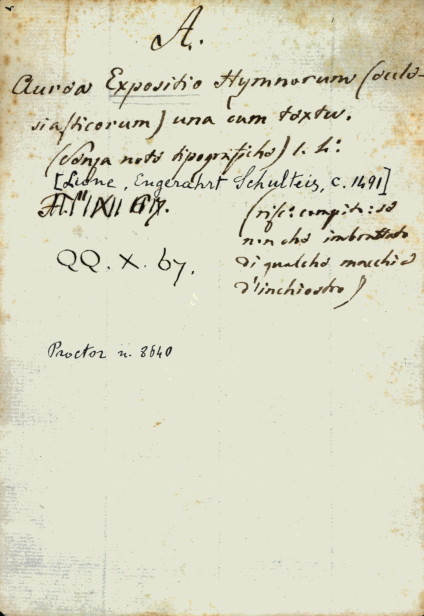 A.
Aurea Expositio Hymnorum (eccle-
siasticorum) una cum textu.
(Senza note tipografiche) l. l.º
[Lione, Engerahrt Schulteis, c. 1491]
QQ. X. 67.
non che imbrattato
di qualche macchia
d'inchiostro)
Proctor n. 8640